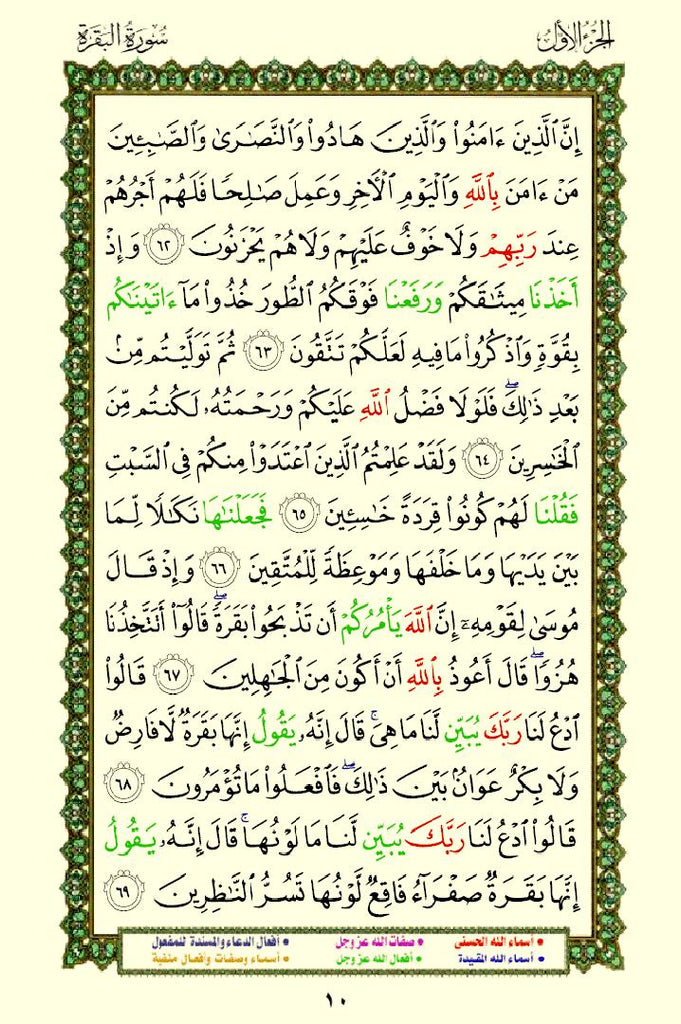 الجزء الأول
سورة البقرة
إِنَّ ٱلَّذِينَ ءَامَنُوا۟ وَٱلَّذِينَ هَادُوا۟ وَٱلنَّصَـٰرَىٰ وَٱلصَّـٰبِـِٔينَ
مَنْ ءَامَنَ بِٱللَّهِ وَٱلْيَوْمِ ٱلْـَٔاخِرِ وَعَمِلَ صَـٰلِحًا فَلَهُمْ أَجْرُهُمْ
عِندَ رَبِّهِمْ وَلَا خَوْفٌ عَلَيْهِمْ وَلَا هُمْ يَحْزَنُونَ ٦٢ وَإِذْ
أَخَذْنَا مِيثَـٰقَكُمْ وَرَفَعْنَا فَوْقَكُمُ ٱلطُّورَ خُذُوا۟ مَآ ءَاتَيْنَـٰكُم
بِقُوَّةٍ وَٱذْكُرُوا۟ مَا فِيهِ لَعَلَّكُمْ تَتَّقُونَ ٦٣ ثُمَّ تَوَلَّيْتُم مِّنۢ
بَعْدِ ذَٰلِكَ ۖ فَلَوْلَا فَضْلُ ٱللَّهِ عَلَيْكُمْ وَرَحْمَتُهُۥ لَكُنتُم مِّنَ
ٱلْخَـٰسِرِينَ ٦٤ وَلَقَدْ عَلِمْتُمُ ٱلَّذِينَ ٱعْتَدَوْا۟ مِنكُمْ فِى ٱلسَّبْتِ
فَقُلْنَا لَهُمْ كُونُوا۟ قِرَدَةً خَـٰسِـِٔينَ ٦٥ فَجَعَلْنَـٰهَا نَكَـٰلًا لِّمَا
بَيْنَ يَدَيْهَا وَمَا خَلْفَهَا وَمَوْعِظَةً لِّلْمُتَّقِينَ ٦٦ وَإِذْ قَالَ
مُوسَىٰ لِقَوْمِهِۦٓ إِنَّ ٱللَّهَ يَأْمُرُكُمْ أَن تَذْبَحُوا۟ بَقَرَةً ۖ قَالُوٓا۟ أَتَتَّخِذُنَا
هُزُوًا ۖ قَالَ أَعُوذُ بِٱللَّهِ أَنْ أَكُونَ مِنَ ٱلْجَـٰهِلِينَ ٦٧ قَالُوا۟
ٱدْعُ لَنَا رَبَّكَ يُبَيِّن لَّنَا مَا هِىَ ۚ قَالَ إِنَّهُۥ يَقُولُ إِنَّهَا بَقَرَةٌ لَّا فَارِضٌ
وَلَا بِكْرٌ عَوَانٌۢ بَيْنَ ذَٰلِكَ ۖ فَٱفْعَلُوا۟ مَا تُؤْمَرُونَ ٦٨
قَالُوا۟ ٱدْعُ لَنَا رَبَّكَ يُبَيِّن لَّنَا مَا لَوْنُهَا ۚ قَالَ إِنَّهُۥ يَقُولُ
إِنَّهَا بَقَرَةٌ صَفْرَآءُ فَاقِعٌ لَّوْنُهَا تَسُرُّ ٱلنَّـٰظِرِينَ ٦٩
• أسماء الله الحسنى • صفات الله عز وجل • أفعال الدعاء والمسندة للمفعول
• أسماء الله المقيدة • أفعال الله عز وجل • أسماء وصفات وأفعال منفية
١٠